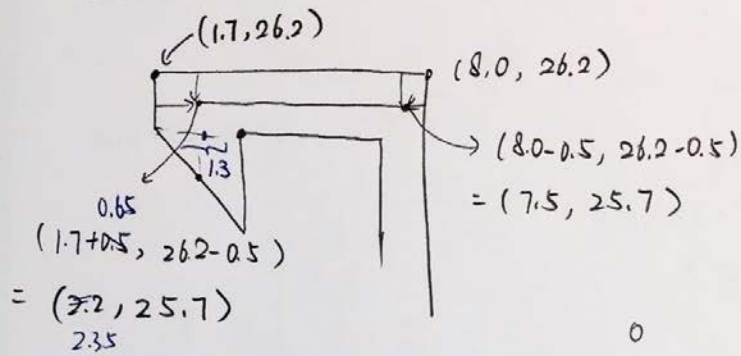 (1.7, 26.2)
(8.0, 26.2)
(8.0-0.5, 26.2-0.5)
= (7.5, 25.7)
1.3
0.65
(1.7+0.5, 26.2-0.5)
= (2.2, 25.7)
2.35
0